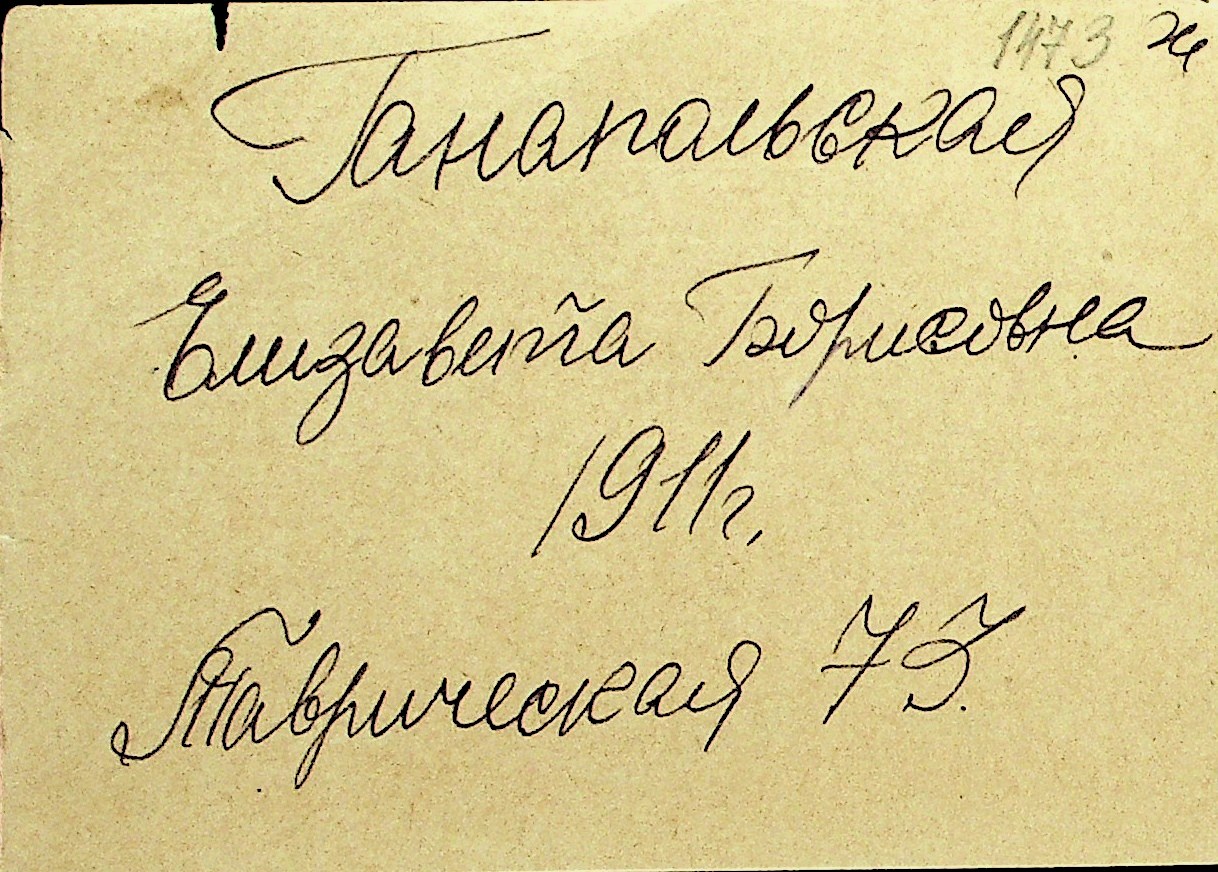 1473 ж
Ганапольская
Елизавета Борисовна
1911 г.
Таврическая 73.